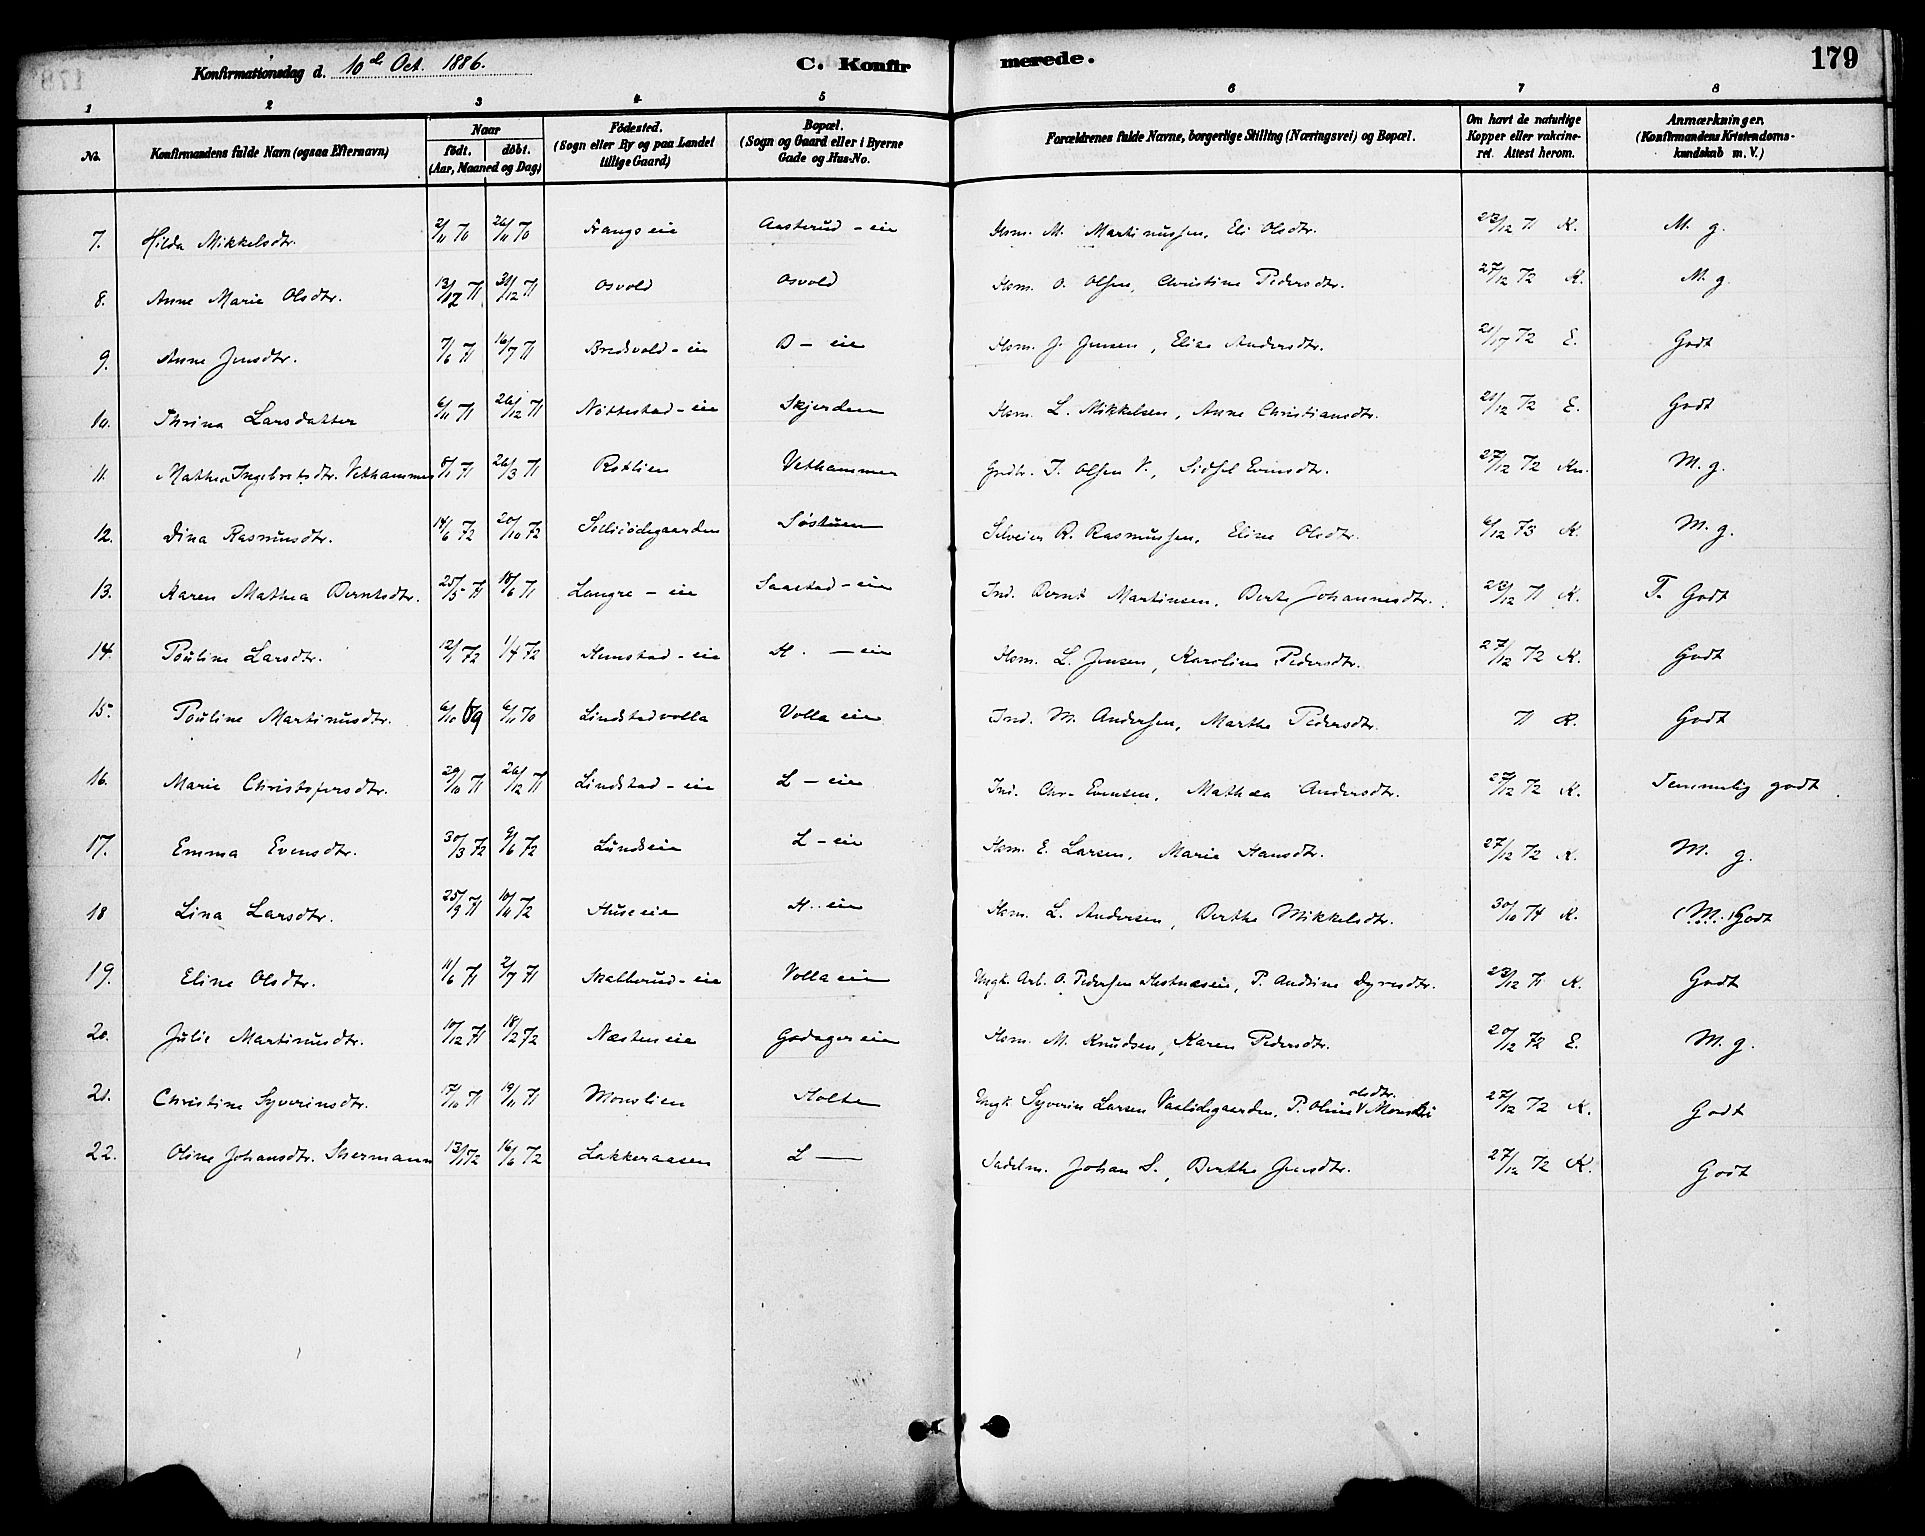 Konfirmationsdag d. 10de Oct. 1886. C. Konfirmerede. 179
1 2 3 4 5 6 7 8
No. Konfirmandens fulde Navn (ogsaa Efternavn) Naar födt. döbt. (Aar, Maaned og Dag) Födested. (Sogn eller By og paa Landet tillige Gaard) Bopæl. (Sogn og Gaard eller i Byerne Gade og Hus-No. Forældrenes fulde Navne, borgerlige Stilling (Næringsvei) og Bopæl. Om havt de naturlige Kopper eller vakcineret. Attest herom. Anmærkninger. (Konfirmandens Kristendomskundskab m. V.)
7. Hilda Mikkelsdtr. 2/11 70 26/11 70 Frangs eie Aasterud - eie Hsm. M. Martinussen, Eli Olsdtr. 23/12 71 K. M. g.
8. Anne Marie Olsdtr. 13/12 71 31/12 71 Osvold Osvold Hsm. O. Olsen, Christine Pedersdtr. 27/12 72 K. M. g.
9. Anne Jensdtr. 7/6 71 16/7 71 Bredvold - eie B - eie Hsm. J. Jensen, Elise Andersdtr. 72 E. Godt
10. Thrina Larsdatter 6/11 71 26/12 71 Nöttestad - eie Skjerden Hsm. L. Mikkelsen, Anne Christiansdtr. 21/12 72 E. Godt
11. Mathea Ingebretsdtr. Vethammer 8/1 71 26/3 71 Rotlien Vethammer Grdbr. I. Olsen V., Sidsel Evensdtr. 27/12 72 Kn. M. g.
12. Dina Rasmusdtr. 14/6 72 20/10 72 Solliödegaarden Söstuen Selveier R. Rasmussen, Eline Olsdtr. 6/12 73 K. M. g.
13. Karen Mathea Berntsdtr. 25/5 71 18/6 71 Langre - eie Saastad - eie Ind. Bernt Martinsen, Berte Johannesdtr. 23/12 71 K. T. Godt
14. Pauline Larsdtr. 12/1 72 1/4 72 Hemstad - eie H. - eie Hsm. L. Jensen, Karoline Pedersdtr. 27/12 72 K. Godt
15. Pauline Martinusdtr. 6/10 69 6/11 70 Lindstadvolla Volla eie Ind. M. Andersen, Marthe Pedersdtr. 71 R. Godt
16. Marie Christofersdtr. 29/10 71 26/12 71 Lindstad - eie L - eie Ind. Chr. Evensen, Mathea Andersdtr. 27/12 72 K. Temmelig godt
17. Emma Evensdtr. 30/3 72 9/6 72 Lundseie L - eie Hsm. E. Larsen, Marie Hansdtr. 27/12 72 K. M. g.
18 Lina Larsdtr. 25/9 71 10/11 72 Huseeie H. eie Hsm. L. Andersen, Berthe Mikkelsdtr. 30/10 74 K. (M.) Godt
19. Eline Olsdtr. 11/6 71 2/7 71 Skatterud - eie Volla eie Ungk. Arb. O. Pedersen Hestnæseie, P. Andrine Dyresdtr. 23/12 71 K. Godt
20. Julie Martinusdtr. 10/12 71 18/2 72 Næsteneie Godager eie Hsm. M. Knudsen, Karen Pedersdtr. 20/12 72 E. M. g.
21. Christine Syverinsdtr. 17/10 71 19/11 71 Monslien Holte Ungk. Syverin Larsen Vaalödegaarden, P. Oline Olsdtr. Monslie 27/12 72 K. Godt
22. Oline Johansdtr. Schermann 13/1 72 16/6 72 Lakkeraasen L — Sadelm. Johan S., Berthe Jensdtr. 27/12 72 K. Godt